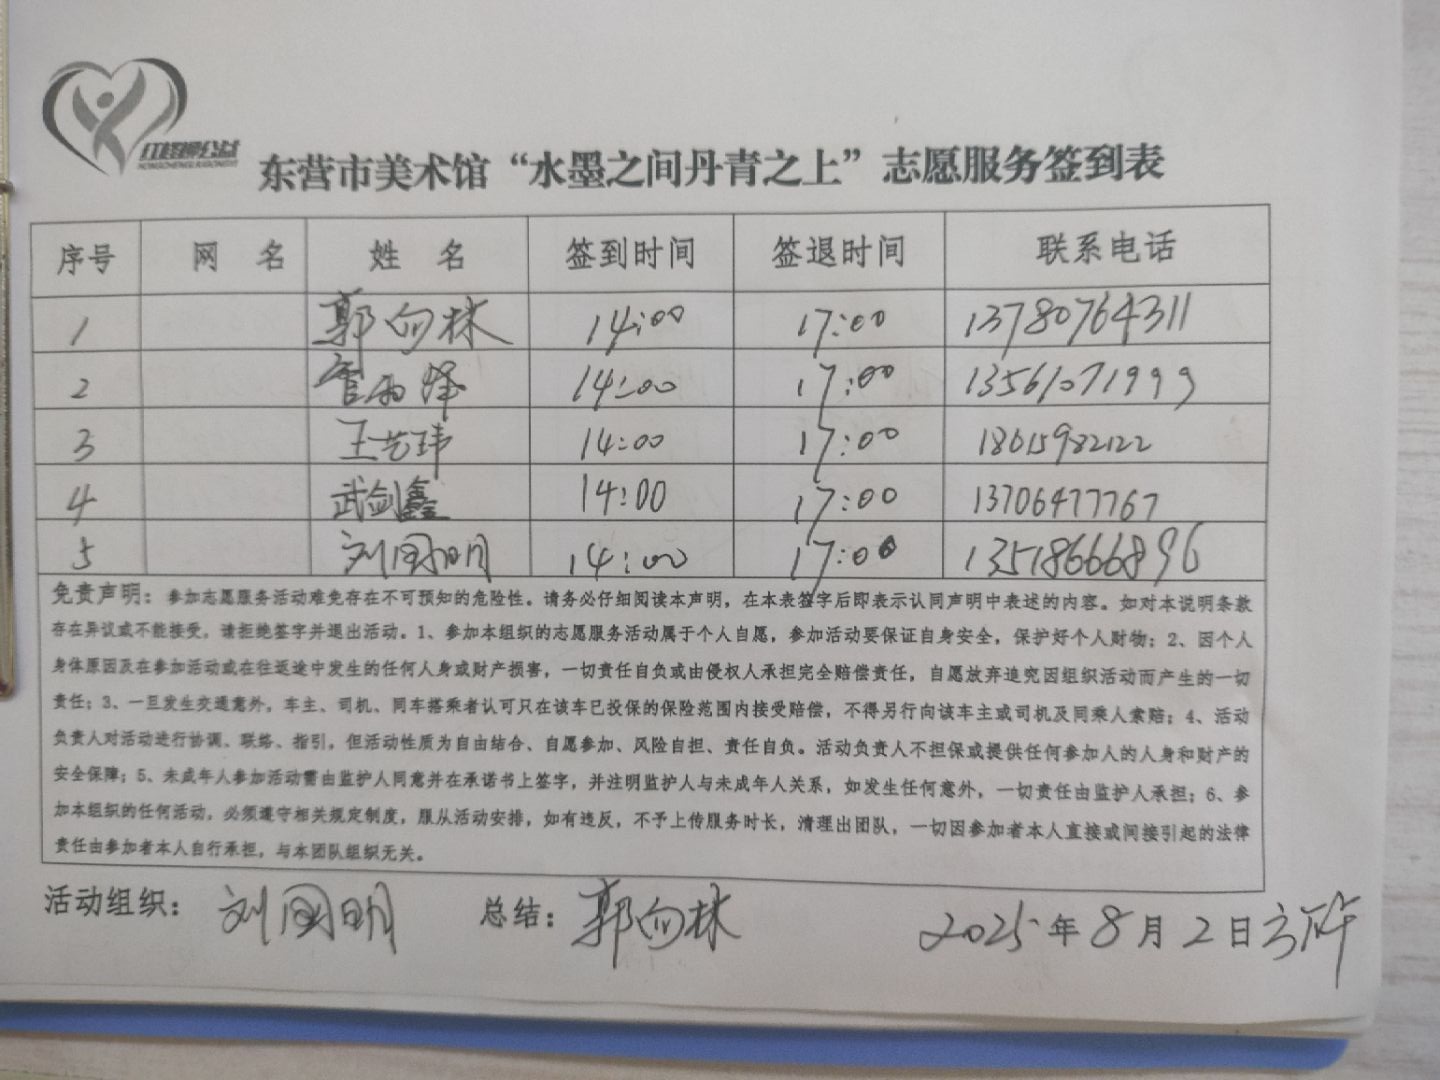 红橙狮公益
东营市美术馆“水墨之间丹青之上”志愿服务签到表
序号 网 名 姓 名 签到时间 签退时间 联系电话
1 郭向林 14:00 17:00 13780764311
2 管雨泽 14:00 17:00 13561071999
3 王艺玮 14:00 17:00 18615982122
4 武剑鑫 14:00 17:00 13706477767
5 刘国明 14:00 17:00 13518666896
免责声明：参加志愿服务活动难免存在不可预知的危险性。请务必仔细阅读本声明，在本表签字后即表示认同声明中表述的内容。如对本说明条款
存在异议或不能接受，请拒绝签字并退出活动。1、参加本组织的志愿服务活动属于个人自愿，参加活动要保证自身安全，保护好个人财物；2、因个人
身体原因及在参加活动或在往返途中发生的任何人身或财产损害，一切责任自负或由侵权人承担完全赔偿责任，自愿放弃追究因组织活动而产生的一切
责任；3、一旦发生交通意外，车主、司机、同车搭乘者认可只在该车已投保的保险范围内接受赔偿，不得另行向该车主或司机及同乘人索赔；4、活动
负责人对活动进行协调、联络、指引，但活动性质为自由结合、自愿参加、风险自担、责任自负。活动负责人不担保或提供任何参加人的人身和财产的
安全保障；5、未成年人参加活动需由监护人同意并在承诺书上签字，并注明监护人与未成年人关系，如发生任何意外，一切责任由监护人承担；6、参
加本组织的任何活动，必须遵守相关规定制度，服从活动安排，如有违反，不予上传服务时长，清理出团队，一切因参加者本人直接或间接引起的法律
责任由参加者本人自行承担，与本团队组织无关。
活动组织：刘国明 总结：郭向林 2025年8月2日下午